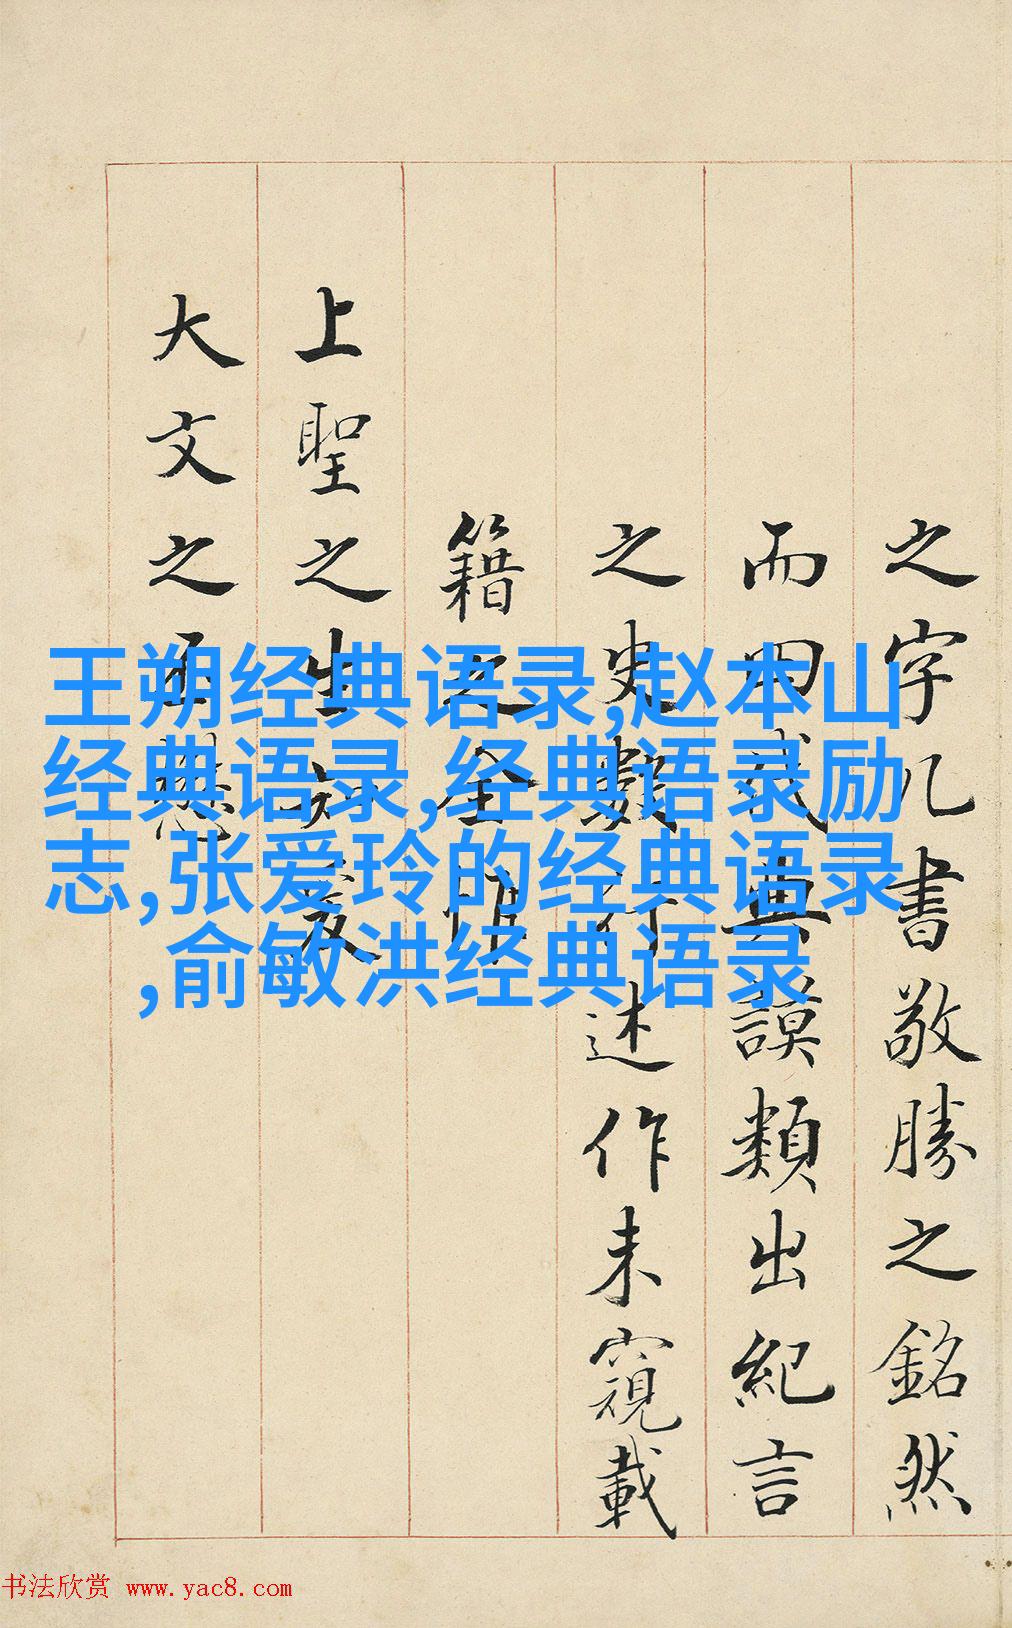 之字几書敬勝之銘然
而四 典謨類出紀言
之史 述作未窺載
籍之全
上聖之生知
大文之
王朔经典语录,赵本山
经典语录,经典语录励
志,张爱玲的经典语录
,俞敏洪经典语录
书法欣赏 www.yac8.com